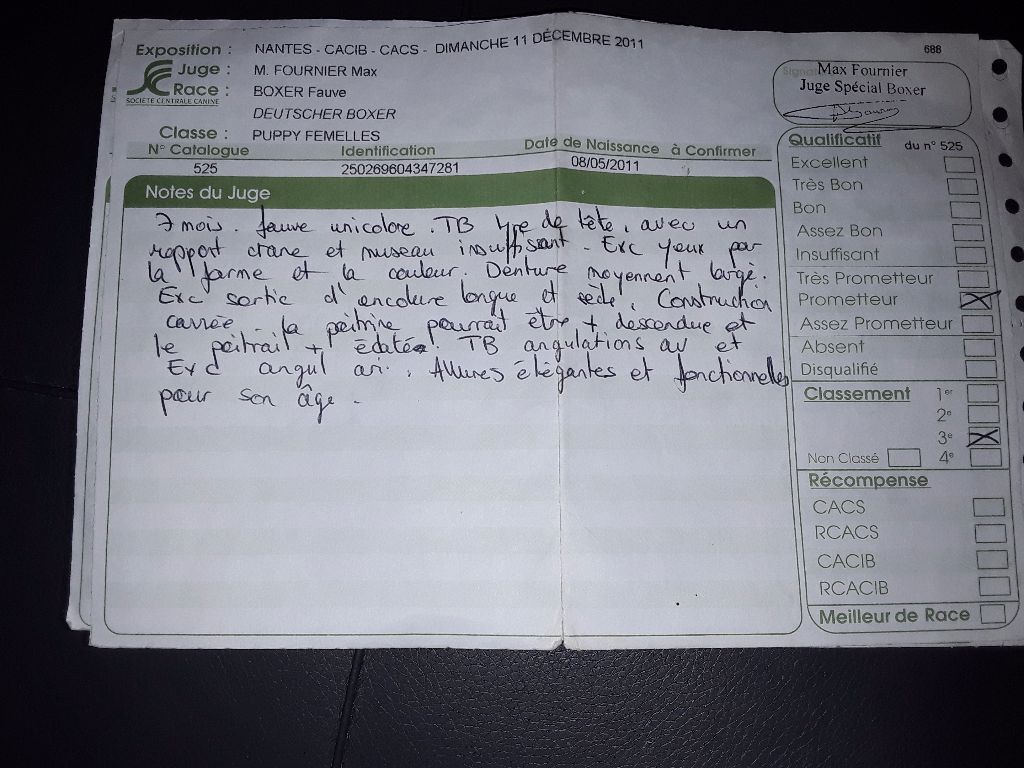 Exposition : NANTES - CACIB - CACS - DIMANCHE 11 DÉCEMBRE 2011
688
Juge : M. FOURNIER Max
Race : BOXER Fauve
SOCIÉTÉ CENTRALE CANINE
DEUTSCHER BOXER
Classe : PUPPY FEMELLES
N° Catalogue Identification Date de Naissance à Confirmer
525 250269604347281 08/05/2011
Max Fournier
Juge Spécial Boxer
Notes du Juge
7 mois. fauve unicolore. TB type de tête, avec un
rapport crane et museau insuffisant. Exc yeux par
la forme et la couleur. Denture moyennent large.
Exc sortie d'encolure longue et sèche, Construction
carrée. la poitrine pourrait être + descendue et
le poitrail + éclaté. TB angulations av et
Exc angul ar. Allures élégantes et fonctionnelles
pour son âge.
Qualificatif du n° 525
Excellent
Très Bon
Bon
Assez Bon
Insuffisant
Très Prometteur
Prometteur X
Assez Prometteur
Absent
Disqualifié
Classement 1er
2e
3e X
Non Classé 4e
Récompense
CACS
RCACS
CACIB
RCACIB
Meilleur de Race